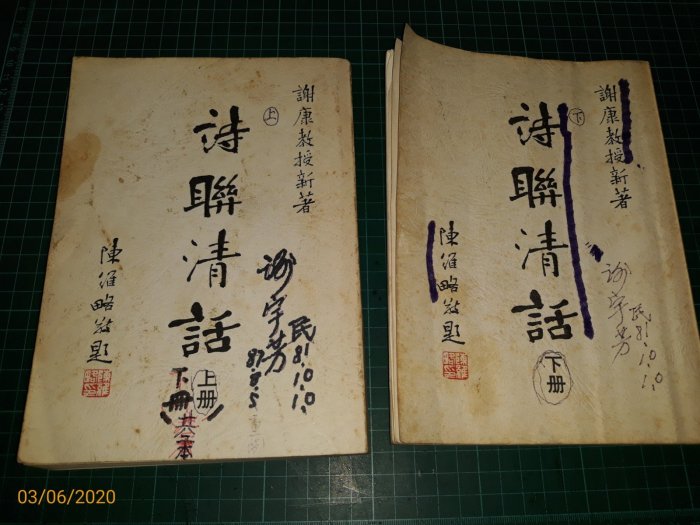 謝康教授新著
上
詩聯清話
上册
下册
共本
陳准略敬題
謝宇芳
民81.10.10
87.8.5
謝康教授新著
下
詩聯清話
下册
陳准略敬題
謝宇芳
民81.10.10
03/06/2020